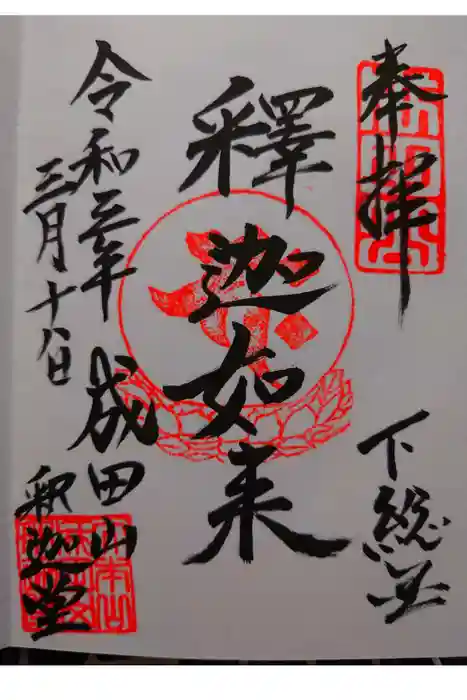 奉拝
下総
釋迦如来
令和三年
三月十八日
成田山
釈迦堂